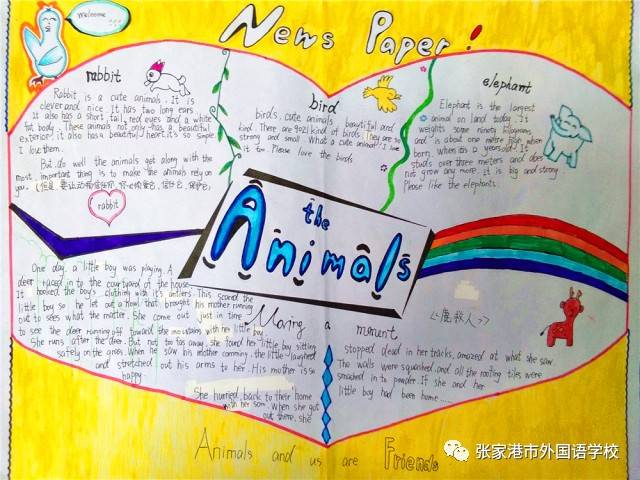 Welcome
News Paper!
rabbit
Rabbit is a cute animals. It is
clever and nice. It has two long ears.
It also has a short tail, red eyes and a white
fat body. These animals not only has a beautiful
exterior, it also has a beautiful heart. it's so simple.
I love them.
But do well the animals get along with the
most important thing is to make the animals rely on
you.
rabbit
bird
birds, cute animals beautiful and
kind. There are 9021 kind of birds. They are so
strong and small. What a cute animal! I love
it too. Please love the birds
elephant
Elephant is the largest
animal on land today. It
weights some ninety kilograms
and is about one metre high when
born. When it's a years old, it
studs over three meters and does
not grow any more. it is big and strong
Please like the elephants.
the
Animals
One day, a little boy was playing. A
deer raced into the courtyard of the house.
It hooked the boy's clothing with it's antlers
little boy so he let out a howl that brought his mother running
out to sees what the matter. She come out just in time
to see the deer running off toward the mountains with her little boy.
She runs after the deer. But not too far away, she found her little boy sitting
safely on the grass. When he saw his mother comming, the little laughed
and stretched out his arms to her. His mother is so
happy
This scared the
She hurried back to their home
with her son. When she got
out there, she
Moving a moment
《鹿救人》
stopped dead in her tracks, amazed at what she saw.
The walls were squashed and all the roofing tiles were
smashed in to powder. If she and her
little boy had been home......
Animals and us are Friends
张家港市外国语学校